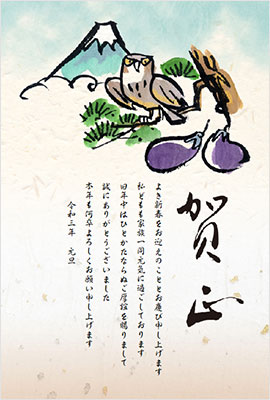 賀正
よき新春をお迎えのこととお慶び申し上げます
私ども家族一同元気に過ごしております
旧年中はひとかたならぬご厚誼を賜りまして
誠にありがとうございました
本年も何卒よろしくお願い申し上げます
令和三年 元旦